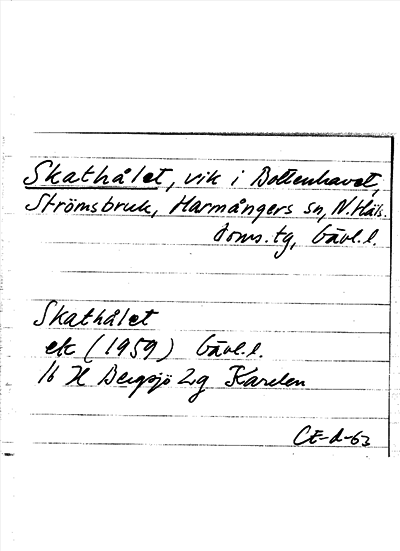 Skathålet, vik i Bottenhavet,
Strömsbruk, Harmångers sn, N. Häls.
doms.tg, Gävl.l.
Skathålet
ek (1959) Gävl.l.
16 H Bergsjö 2g Karelen
CE-d-63